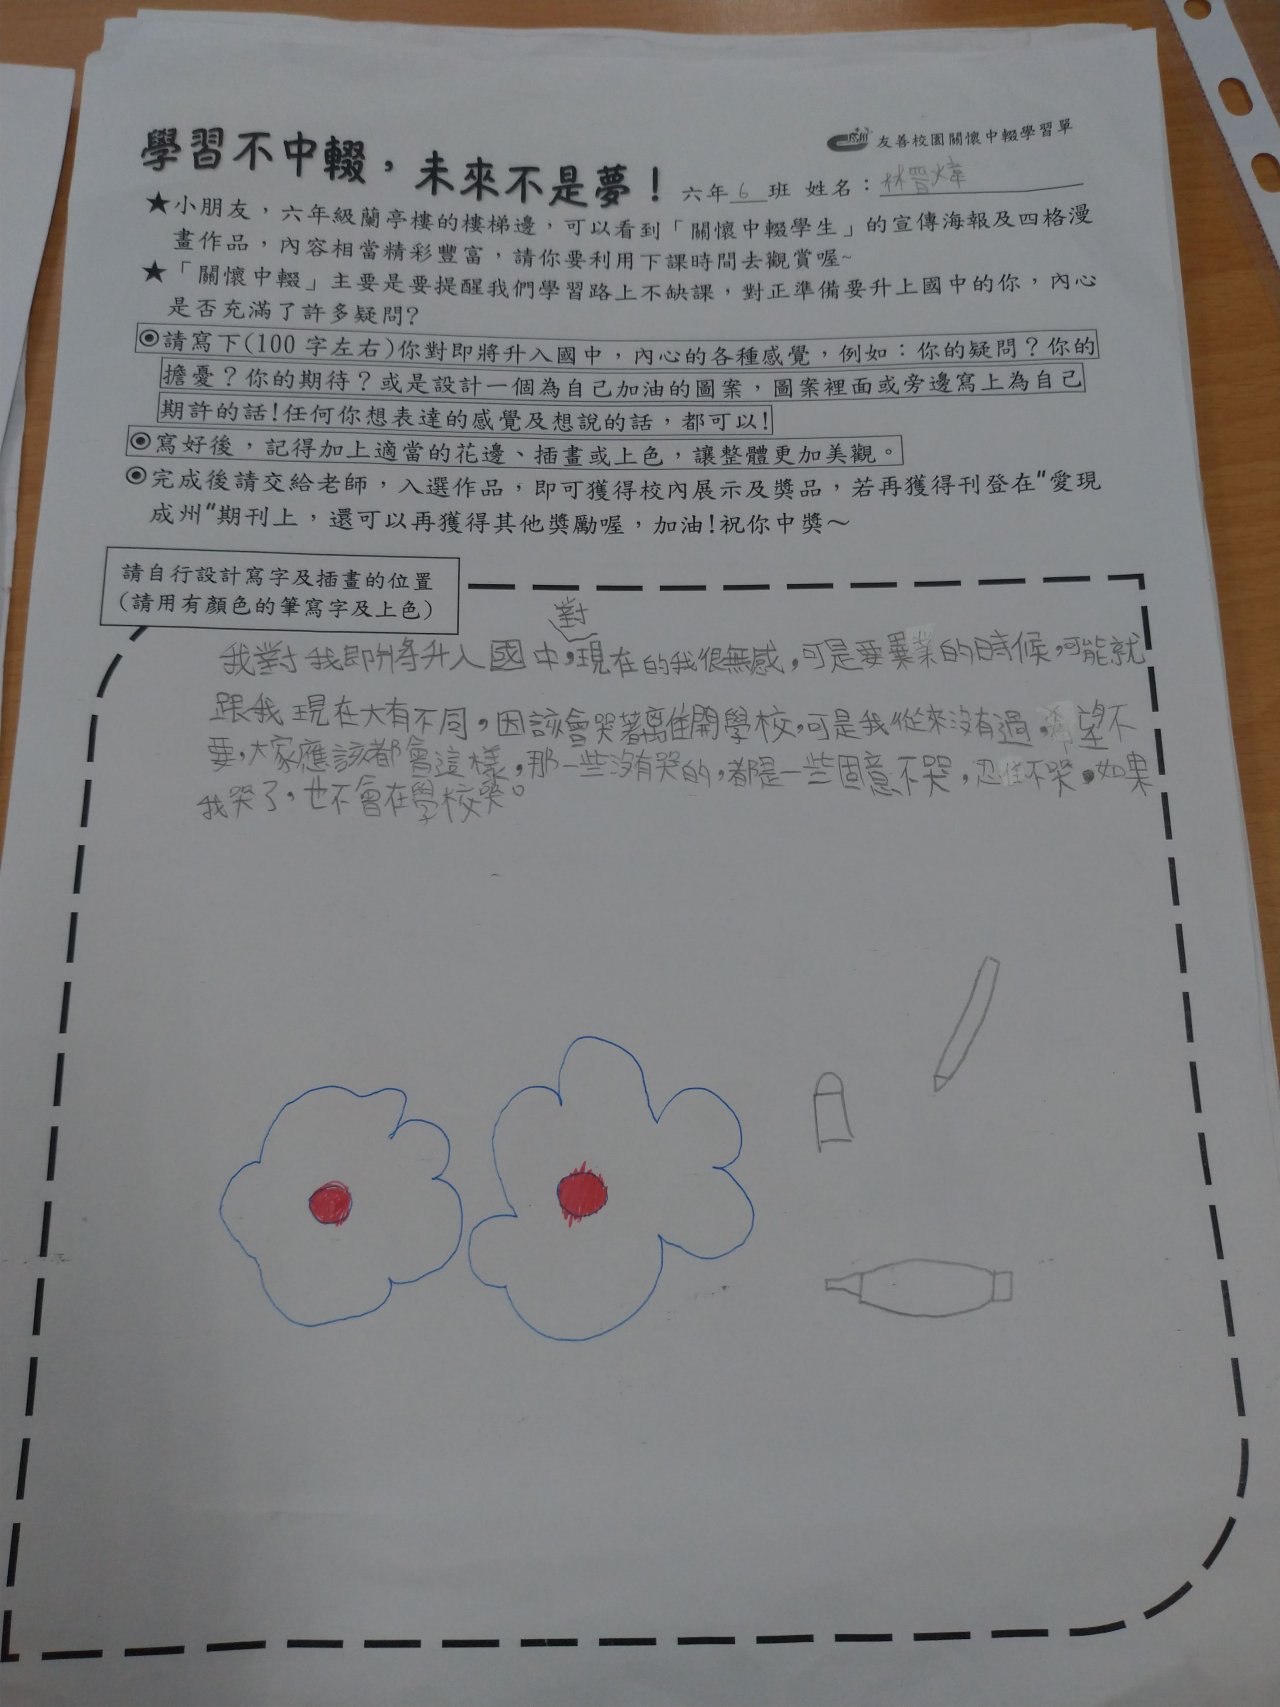 學習不中輟，未來不是夢！
友善校園關懷中輟學習單
六年6班 姓名：林晉煒
★小朋友，六年級蘭亭樓的樓梯邊，可以看到「關懷中輟學生」的宣傳海報及四格漫
畫作品，內容相當精彩豐富，請你要利用下課時間去觀賞喔~
★「關懷中輟」主要是要提醒我們學習路上不缺課，對正準備要升上國中的你，內心
是否充滿了許多疑問?
◉請寫下(100 字左右)你對即將升入國中，內心的各種感覺，例如：你的疑問？你的
擔憂？你的期待？或是設計一個為自己加油的圖案，圖案裡面或旁邊寫上為自己
期許的話!任何你想表達的感覺及想說的話，都可以!
◉寫好後，記得加上適當的花邊、插畫或上色，讓整體更加美觀。
◉完成後請交給老師，入選作品，即可獲得校內展示及獎品，若再獲得刊登在"愛現
成州"期刊上，還可以再獲得其他獎勵喔，加油!祝你中獎～
請自行設計寫字及插畫的位置
(請用有顏色的筆寫字及上色)
對
我對我即將升入國中，現在的我很無感，可是要畢業的時候，可能就
跟我現在大有不同，因該會哭著離開學校，可是我從來沒有過，希望不
要，大家應該都會這樣，那一些沒有哭的，都是一些固意不哭，忍住不哭。如果
我哭了，也不會在學校哭。